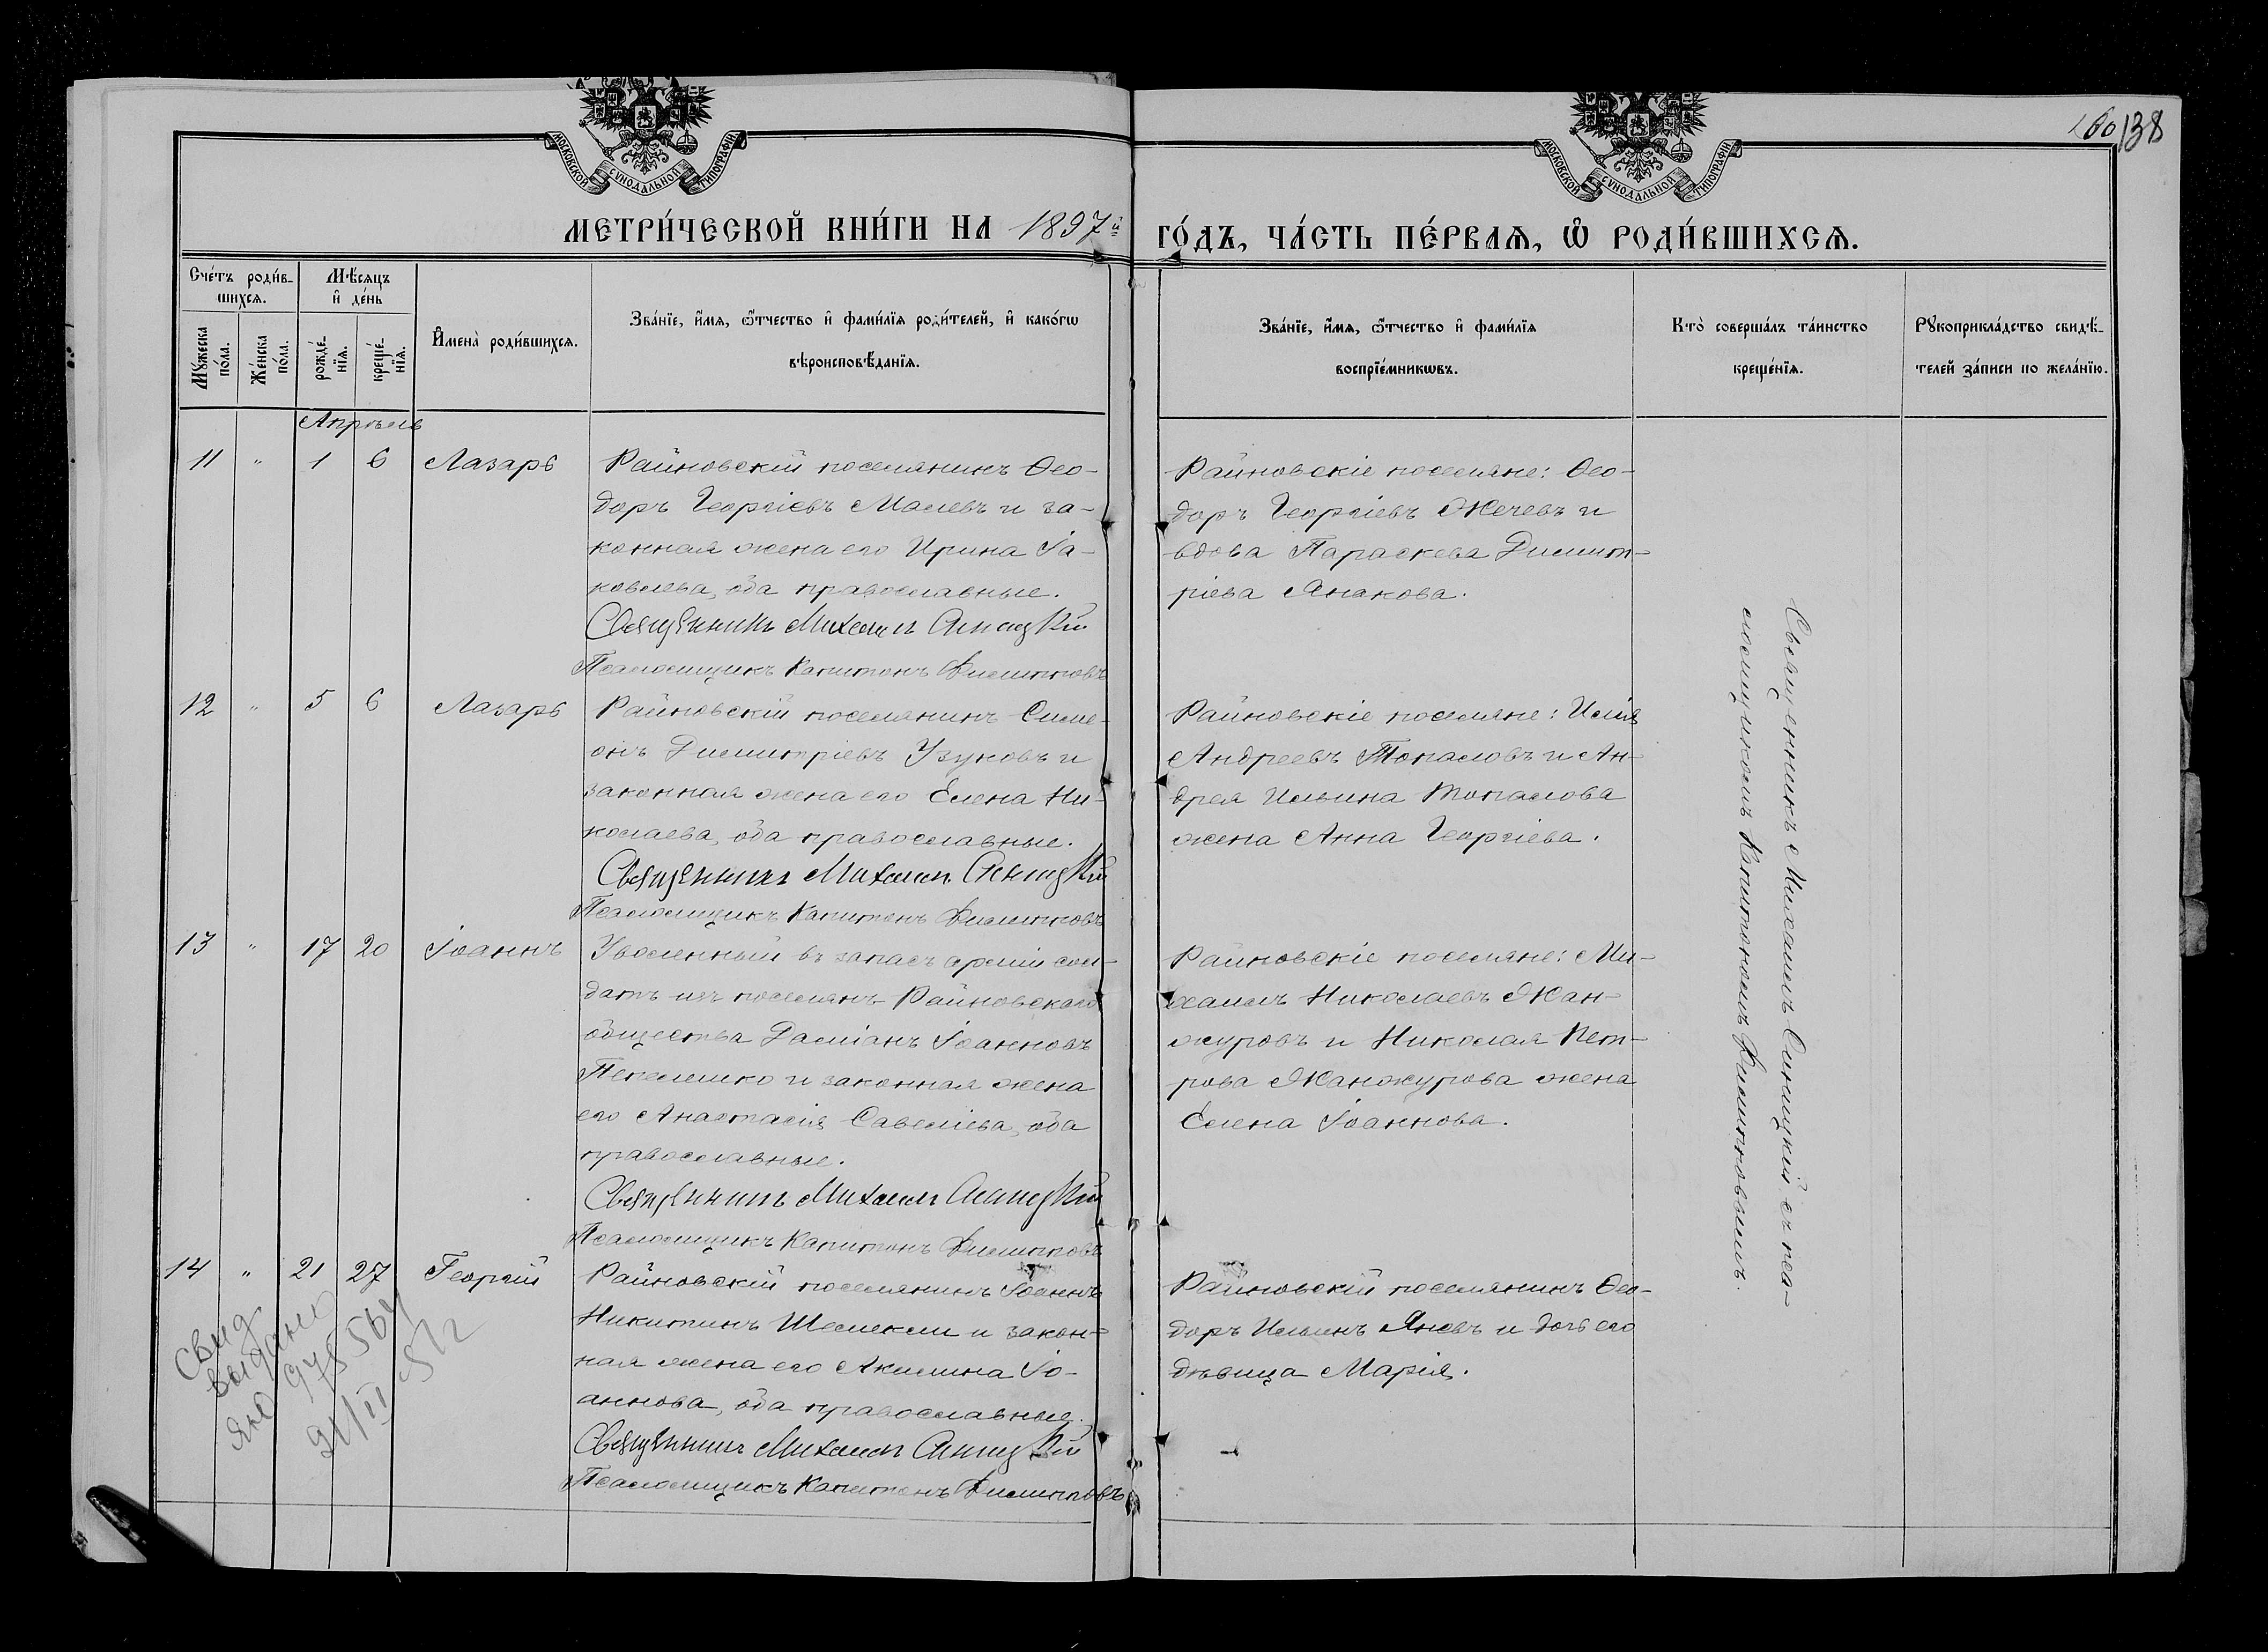 160 138
МОСКОВСКОЙ СѴНОДАЛЬНОЙ ТИПОГРАФІИ
МОСКОВСКОЙ СѴНОДАЛЬНОЙ ТИПОГРАФІИ
МЕТРИ́ЧЕСКОЙ КНИ́ГИ НА 1897й ГО́ДЪ, ЧА́СТЬ ПЕ́РВАѦ, Ѡ РОДИ́ВШИХСѦ.
Сче́тъ роди́в-
шихсѧ.
Мѣ́сѧцъ
и҆ де́нь
Мꙋ́жеска
по́ла.
Же́нска
по́ла.
рожде́-
нїѧ.
креще́-
нїѧ.
И҆мена̀ роди́вшихсѧ.
Зва́нїе, и҆́мѧ, ѻ҆́тчество и҆ фами́лїѧ роди́телей, и҆ како́гѡ
вѣроисповѣ́данїѧ.
Зва́нїе, и҆́мѧ, ѻ҆́тчество и҆ фами́лїѧ
воспрїе́мникѡвъ.
Кто̀ соверша́лъ та́инство
креще́нїѧ.
Рꙋкоприкла́дство свидѣ́-
телей за́писи по жела́нїю.
Апрѣль
11 " 1 6 Лазарь
Райновскій поселянинъ Ѳео-
доръ Георгіевъ Малевъ и за-
конная жена его Ирина Іа-
ковлева, оба православные.
Священникъ Михаилъ Синицкій
Псаломщикъ Капитонъ Филипповъ
Райновскіе поселяне: Ѳео-
доръ Георгіевъ Жечевъ и
вдова Параскева Димит-
ріева Янакова.
12 " 5 6 Лазарь
Райновскій поселянинъ Симе-
онъ Димитріевъ Узуновъ и
законная жена его Елена Ни-
колаева, оба православные.
Священникъ Михаилъ Синицкій
Псаломщикъ Капитонъ Филипповъ
Райновскіе поселяне: Илія
Андреевъ Топаловъ и Ан-
дрея Ильина Топалова
жена Анна Георгіева.
13 " 17 20 Іоаннъ
Уволенный въ запасъ арміи сол-
датъ изъ поселянъ Райновскаго
общества Даміанъ Іоанновъ
Пепелешко и законная жена
его Анастасія Савеліева, оба
православные.
Священникъ Михаилъ Синицкій
Псаломщикъ Капитонъ Филипповъ
Райновскіе поселяне: Ми-
хаилъ Николаевъ Жан-
журовъ и Николая Пет-
рова Жанжурова жена
Елена Іоаннова.
14 " 21 27 Георгій
Райновскій поселянинъ Іоаннъ
Никитинъ Шемекли и закон-
ная жена его Акилина Іо-
аннова, оба православные.
Священникъ Михаилъ Синицкій
Псаломщикъ Капитонъ Филипповъ
Райновскій поселянинъ Ѳео-
доръ Ильинъ Яневъ и дочь его
дѣвица Марія.
Священникъ Михаилъ Синицкій съ пса-
ломщикомъ Капитономъ Филипповымъ.
свид
выдано